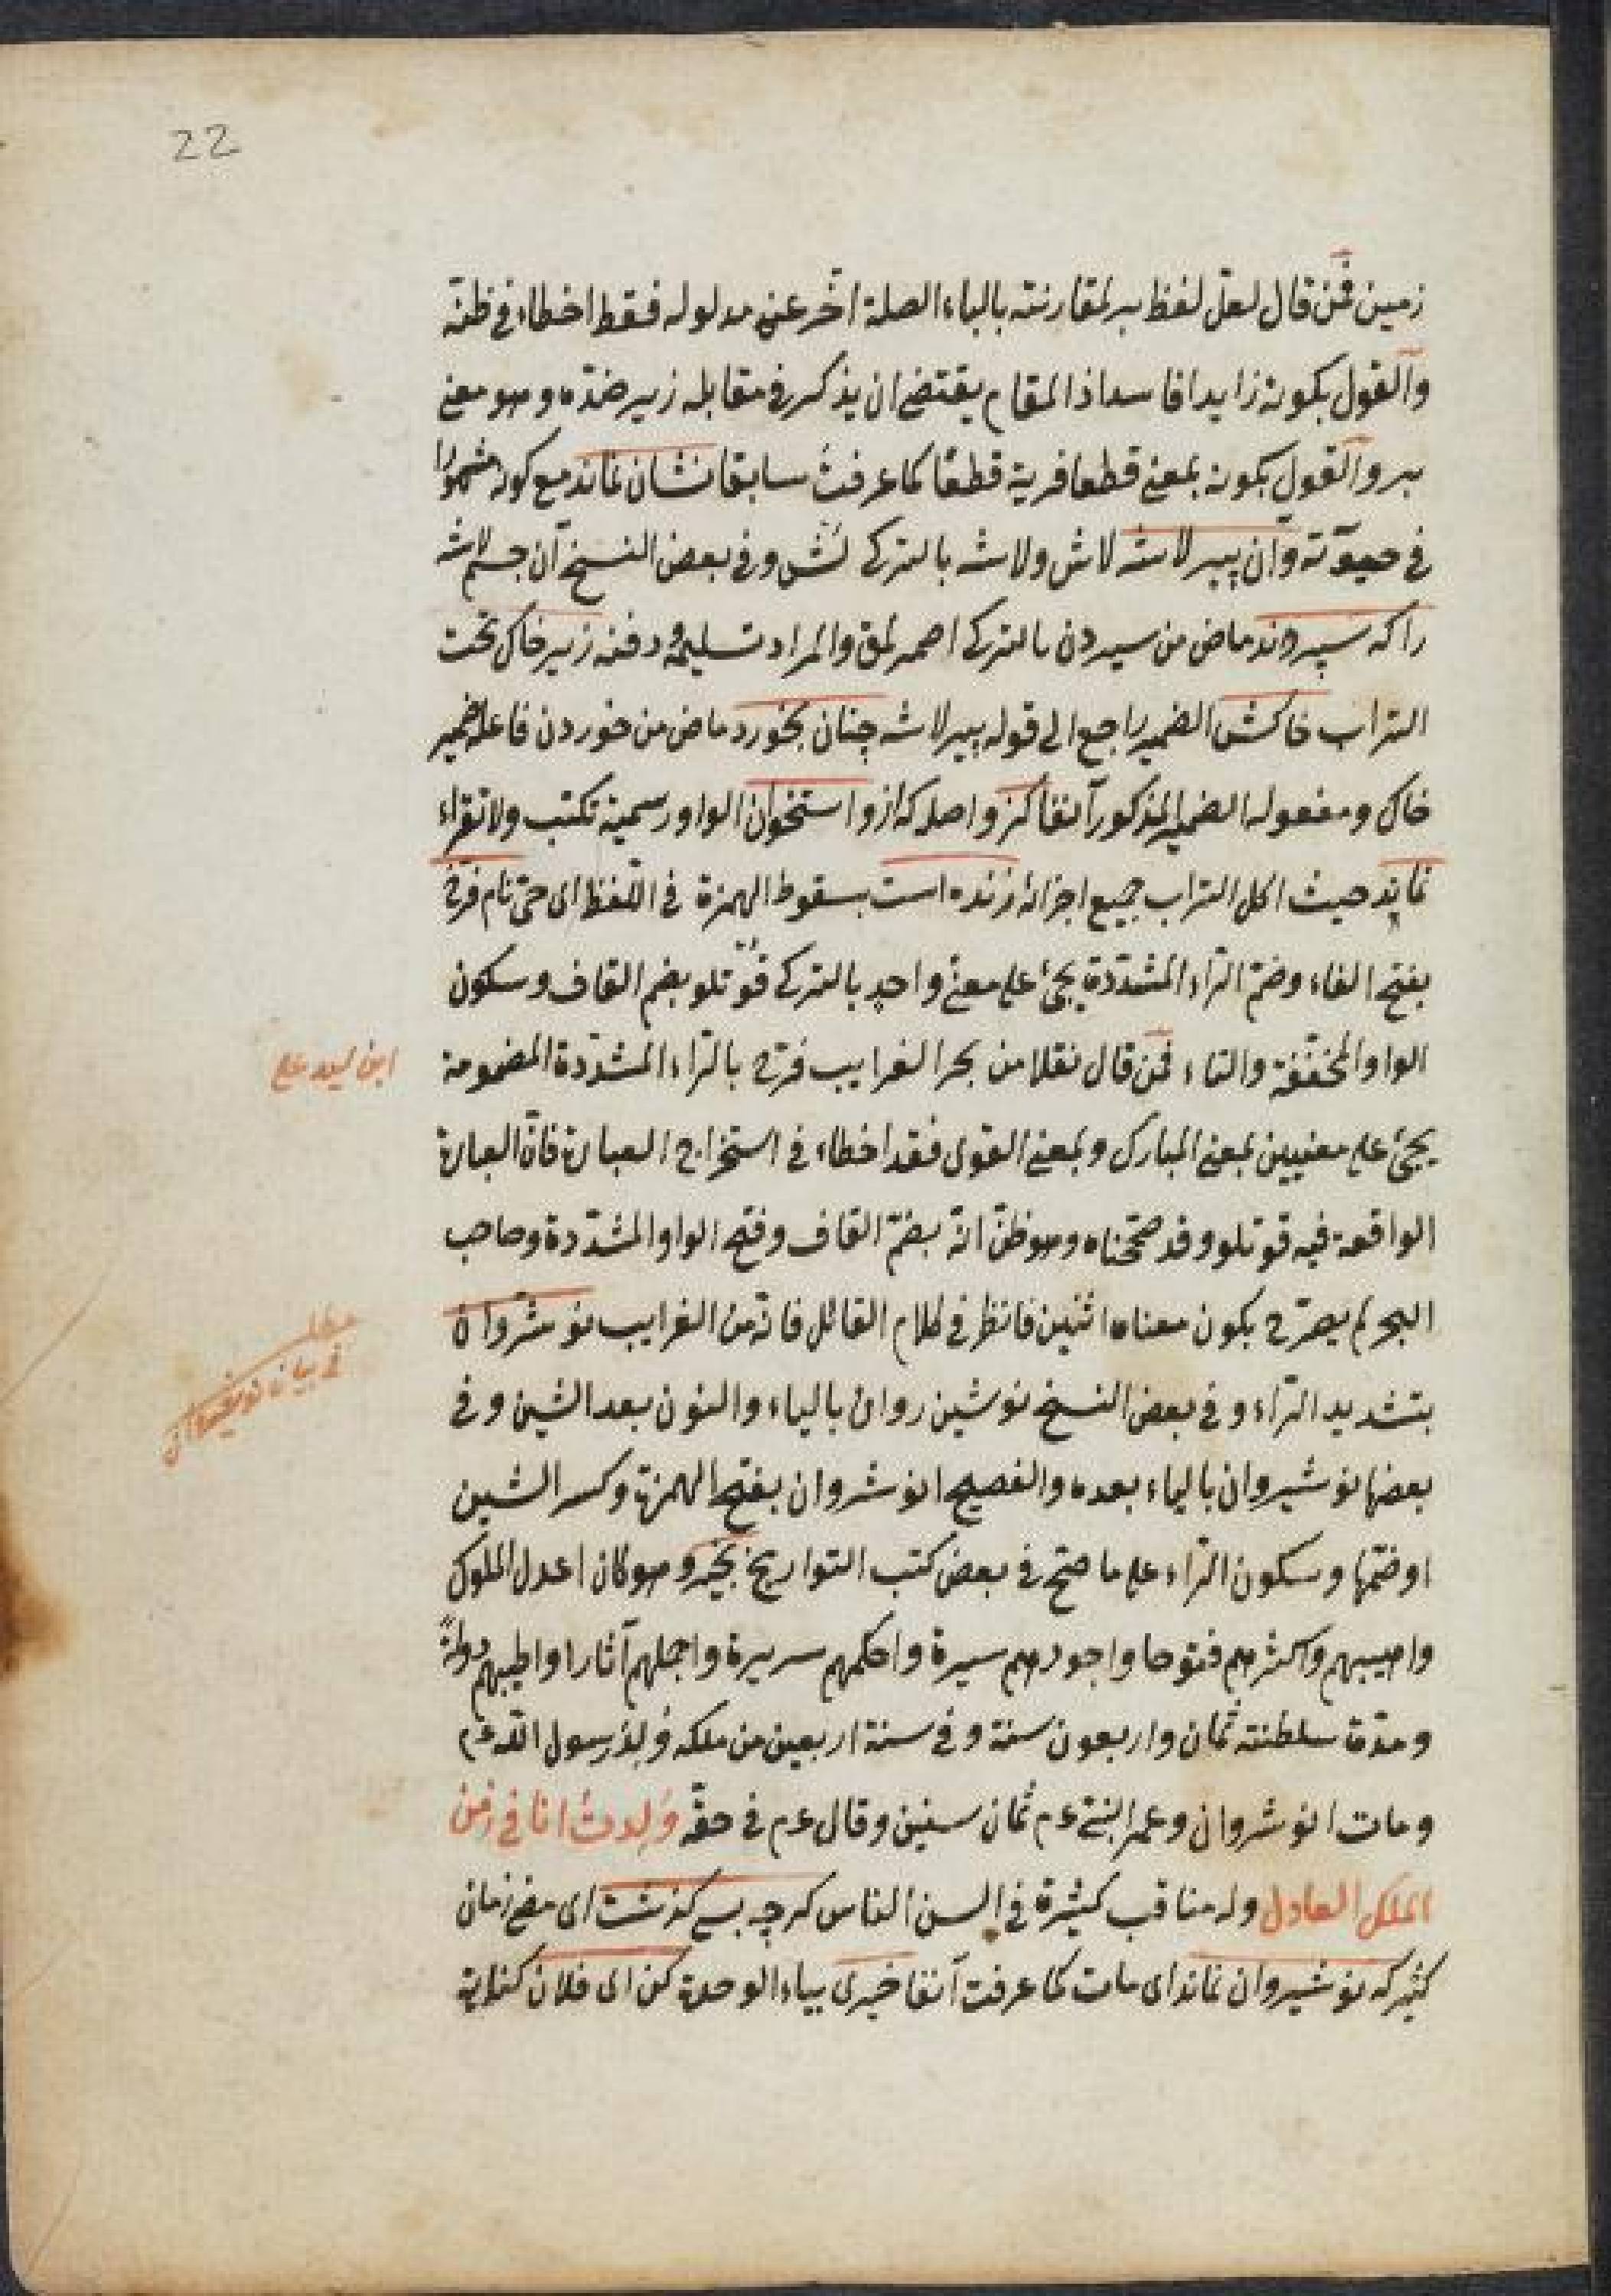 22
زمين فمن قال لعلّ لفظ بر لمقارنته بالباء الصلة اخّر عن مدلوله فقط اخطاء في ظنّه
والقول بكونه زايدا فاسد اذ المقام يقتضى ان يذكر في مقابله زير ضدّه وهو معنى
بر والقول بكونه بمعنى قطعا فرية قطعًا كما عرفت سابقا نشان نماند مع كونه مشهورًا
في حيوته وآن پير لاشه لاش ولاشه بالتركى لش وفي بعض النسخ آن جسم لاشه
را كه سپردند ماض من سپردن بالتركى اصمرلمق والمراد تسليمه ودفنه زير خاك تحت
التراب خاكش الضمير راجع الى قوله پير لاشه چنان بخورد ماض من خوردن فاعله ضمير
خاك ومفعوله الضمير المذكور آنفا كزو اصله كه ازو استخوان الواو رسمية تكتب ولا تقراء
نماند حيث اكل التراب جميع اجزائه زنده است بسقوط الهمزة في اللّفظ اى حىّ نام فرّخ
بفتح الفاء وضمّ الرّاء المشدّدة يجئ على معنى واحد بالتركى قوتلو بضم القاف وسكون
الواو المخفّفة والتاء فمن قال نقلا من بحر الغرايب فرّخ بالرّاء المشدّدة المضمومة
ابن ليد على
يجئ على معنيين بمعنى المبارك وبمعنى القول فقد اخطاء في استخراج العبارة فانّ العبارة
الواقعة فيه قوتلو وقد صحّحناه وهو ظنّ انّه بضمّ القاف وفتح الواو المشدّدة وصاحب
البحر لم يصرّح بكون معناه اثنين فانظر في كلام القائل فانّه من الغرايب نوشروان
مطلب
في بيان نوشيروان
بتشديد الرّاء وفي بعض النسخ نوشين روان بالياء والنون بعد الشين وفي
بعضها نوشيروان بالياء بعده والفصيح انوشروان بفتح الهمزة وكسر الشين
اوضمّها وسكون الرّاء على ما صحّ في بعض كتب التواريخ بخير وهو كان اعدل الملوك
واهيبهم واكثرهم فتوحا واجودهم سيرة واحكمهم سريرة واجملهم آثارا واطيبهم دولةً
ومدّة سلطنته ثمان واربعون سنة وفي سنة اربعين من ملكه وُلِد رسول اللّه عم
ومات انوشروان وعمر النبى عم ثمان سنين وقال عم في حقّه وُلِدتُ انا في زمن
الملك العادل وله مناقب كثيرة في السن الناس كرچه بسى كذشت اى مضى زمان
كثير كه نوشيروان نماند اى مات كما عرفت آنفا خيرى بياء الوحدة كن اى فلان كناية